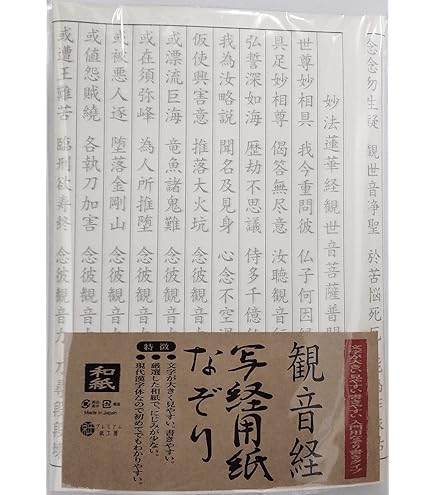 念念勿生疑 観世音浄聖 於苦悩死
妙法蓮華経観世音菩薩普門
世尊妙相具 我今重問彼 仏子何因
具足妙相尊 偈答無尽意 汝聴観音行
弘誓深如海 歴劫不思議 侍多千億
我為汝略説 聞名及見身 心念不空過
仮使興害意 推落大火坑 念彼観音
或漂流巨海 竜魚諸鬼難 念彼観音
或在須弥峰 為人所推堕 念彼観音
或被悪人逐 堕落金剛山 念彼観音
或値怨賊繞 各執刀加害 念彼観音
或遭王難苦 臨刑欲寿終 念彼観音力 刀尋段段壊
観音経
写経用紙
なぞり
特徴
●文字が大きく見やすい、書きやすい。
●厳選した和紙で、にじみが少ない。
●現代漢字体なので初めてでもわかりやすい。
和紙
Made in Japan
プレミアム
紙工房